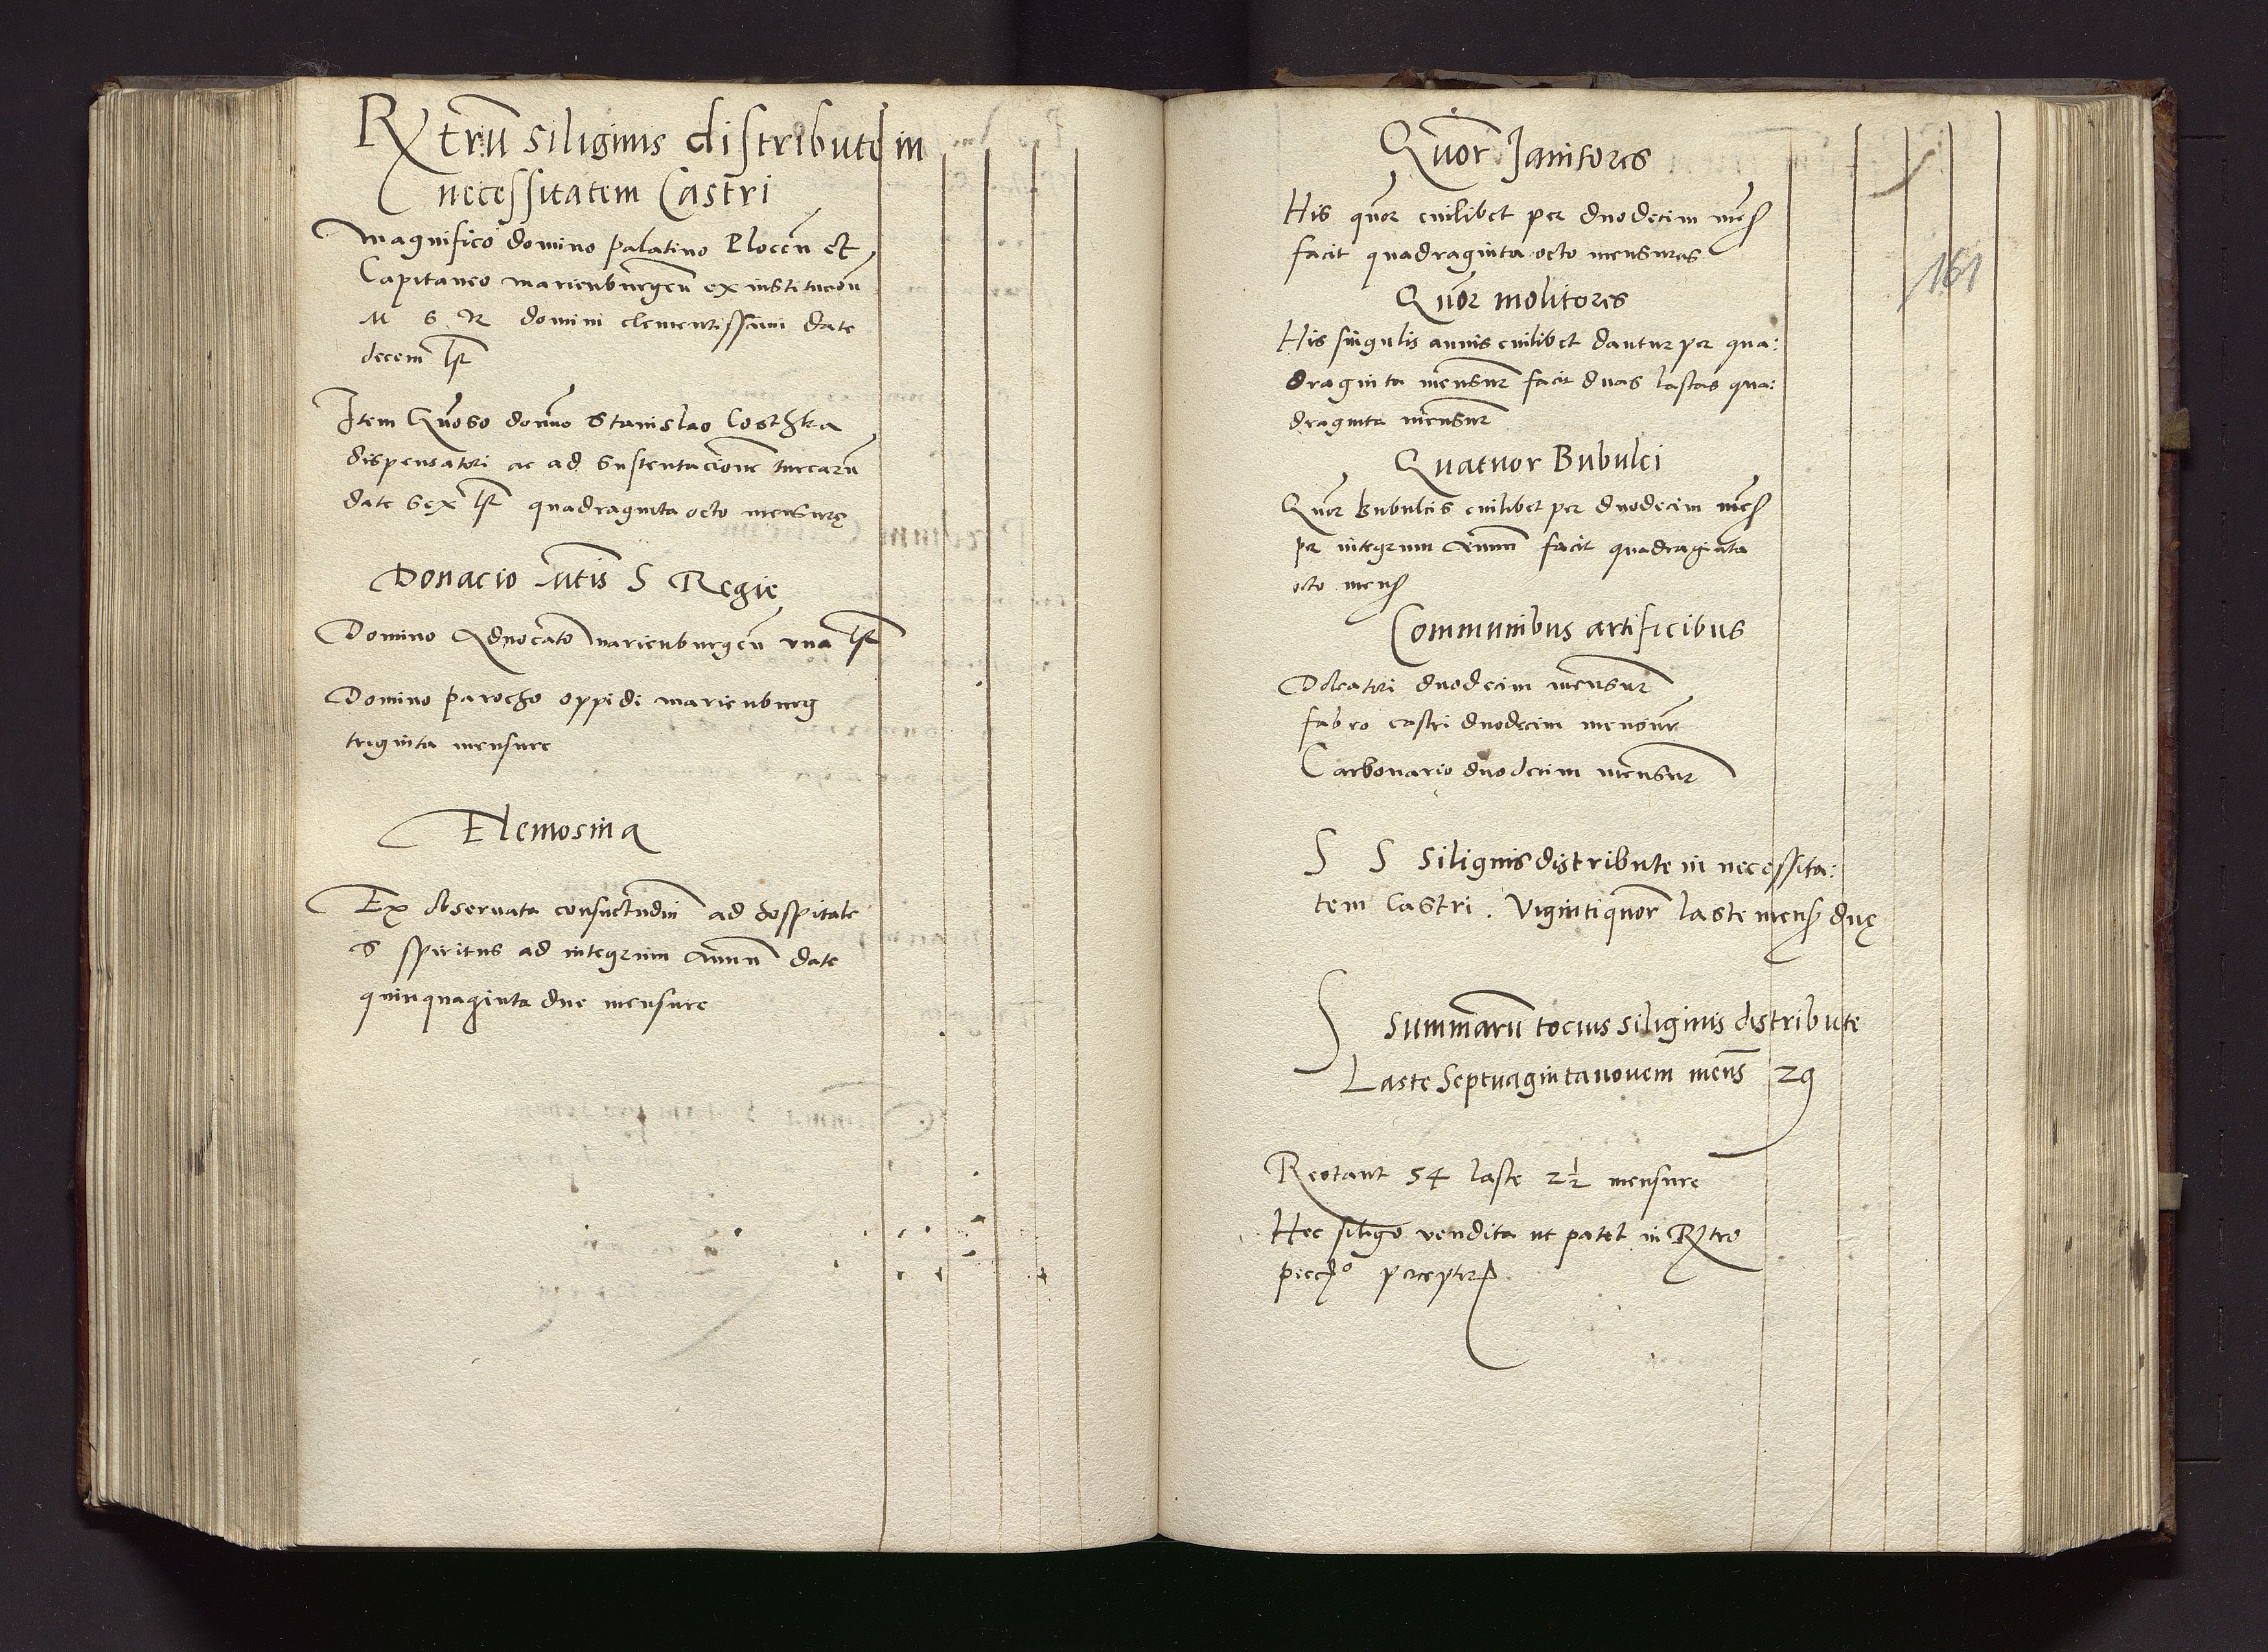 Rxtrū siliginis distribute in
necessitatem Castri
Magnifico domino palatino Plocēn et
Capitaneo marienburgēn ex institucoñ
M S R domini clementissimi date
decem lst
Item Gñoso domño Stanislao Costhka
dispensatori ac ad sustentacionē turcarū
date sex lst quadraginta octo mensurę
Donacio Mtis S Regie
Domino Advocato marienburgēn vna lst
Domino parocho oppidi marienburg
triginta mensure
Elemosina
Ex observata consuetudiñ ad hospitale
S spiritus ad integrum Annū date
quinquaginta due mensure
Quōr Janitores
His quōr cuilibet per duodecim mēs
facit quadraginta octo mensuras
161
Quōr molitores
His singulis annis cuilibet dantur per qua:
draginta mensur facit duas lastas qua:
draginta mensur
Quatuor Bubulci
Quōr Bubulcis cuilibet per duodecim mēs
per integrum Annū facit quadraginta
octo mens
Communibus artificibus
Doleatori duodecim mensur
fabro castri duodecim mensur
Carbonario duodecim mensur
S S Siliginis distribute in necessita:
tem Castri . Vigintiquōr laste mens duę
S Summarū tocius siliginis distribute
Laste Septuagintanouem mens 29
Restant 54 laste 2½ mensure
Hec siligo vendita ut patet in Rxtro
pecho perceptor